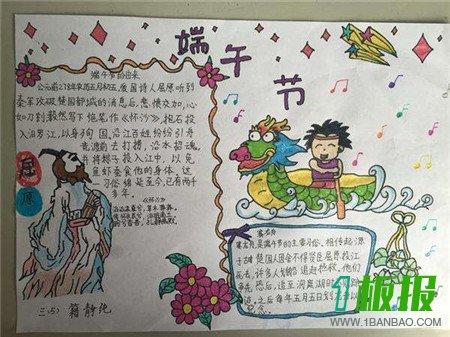 端午节
端午节的由来
公元前278年农历五月初五,爱国诗人屈原听到
秦军攻破楚国都城的消息后,悲愤交加,心
如刀割,毅然写下绝笔作《怀沙》,抱石投
入汨罗江,以身殉国。沿江百姓纷纷引舟
竞渡前去打捞,沿水招魂,
并将粽子投入江中,以免
鱼虾蚕食他的身体。这
一习俗绵延至今,已有两千
多年。
屈原
赛龙舟
赛龙舟,是端午节的主要习俗。相传起源
于古时楚国人因舍不得贤臣屈原投江
死去,许多人划船追赶拯救。他们
争先恐后,追至洞庭湖时
之后每年五月五日划
纪念
三(5)
1板报
WWW.1BANBAO.COM